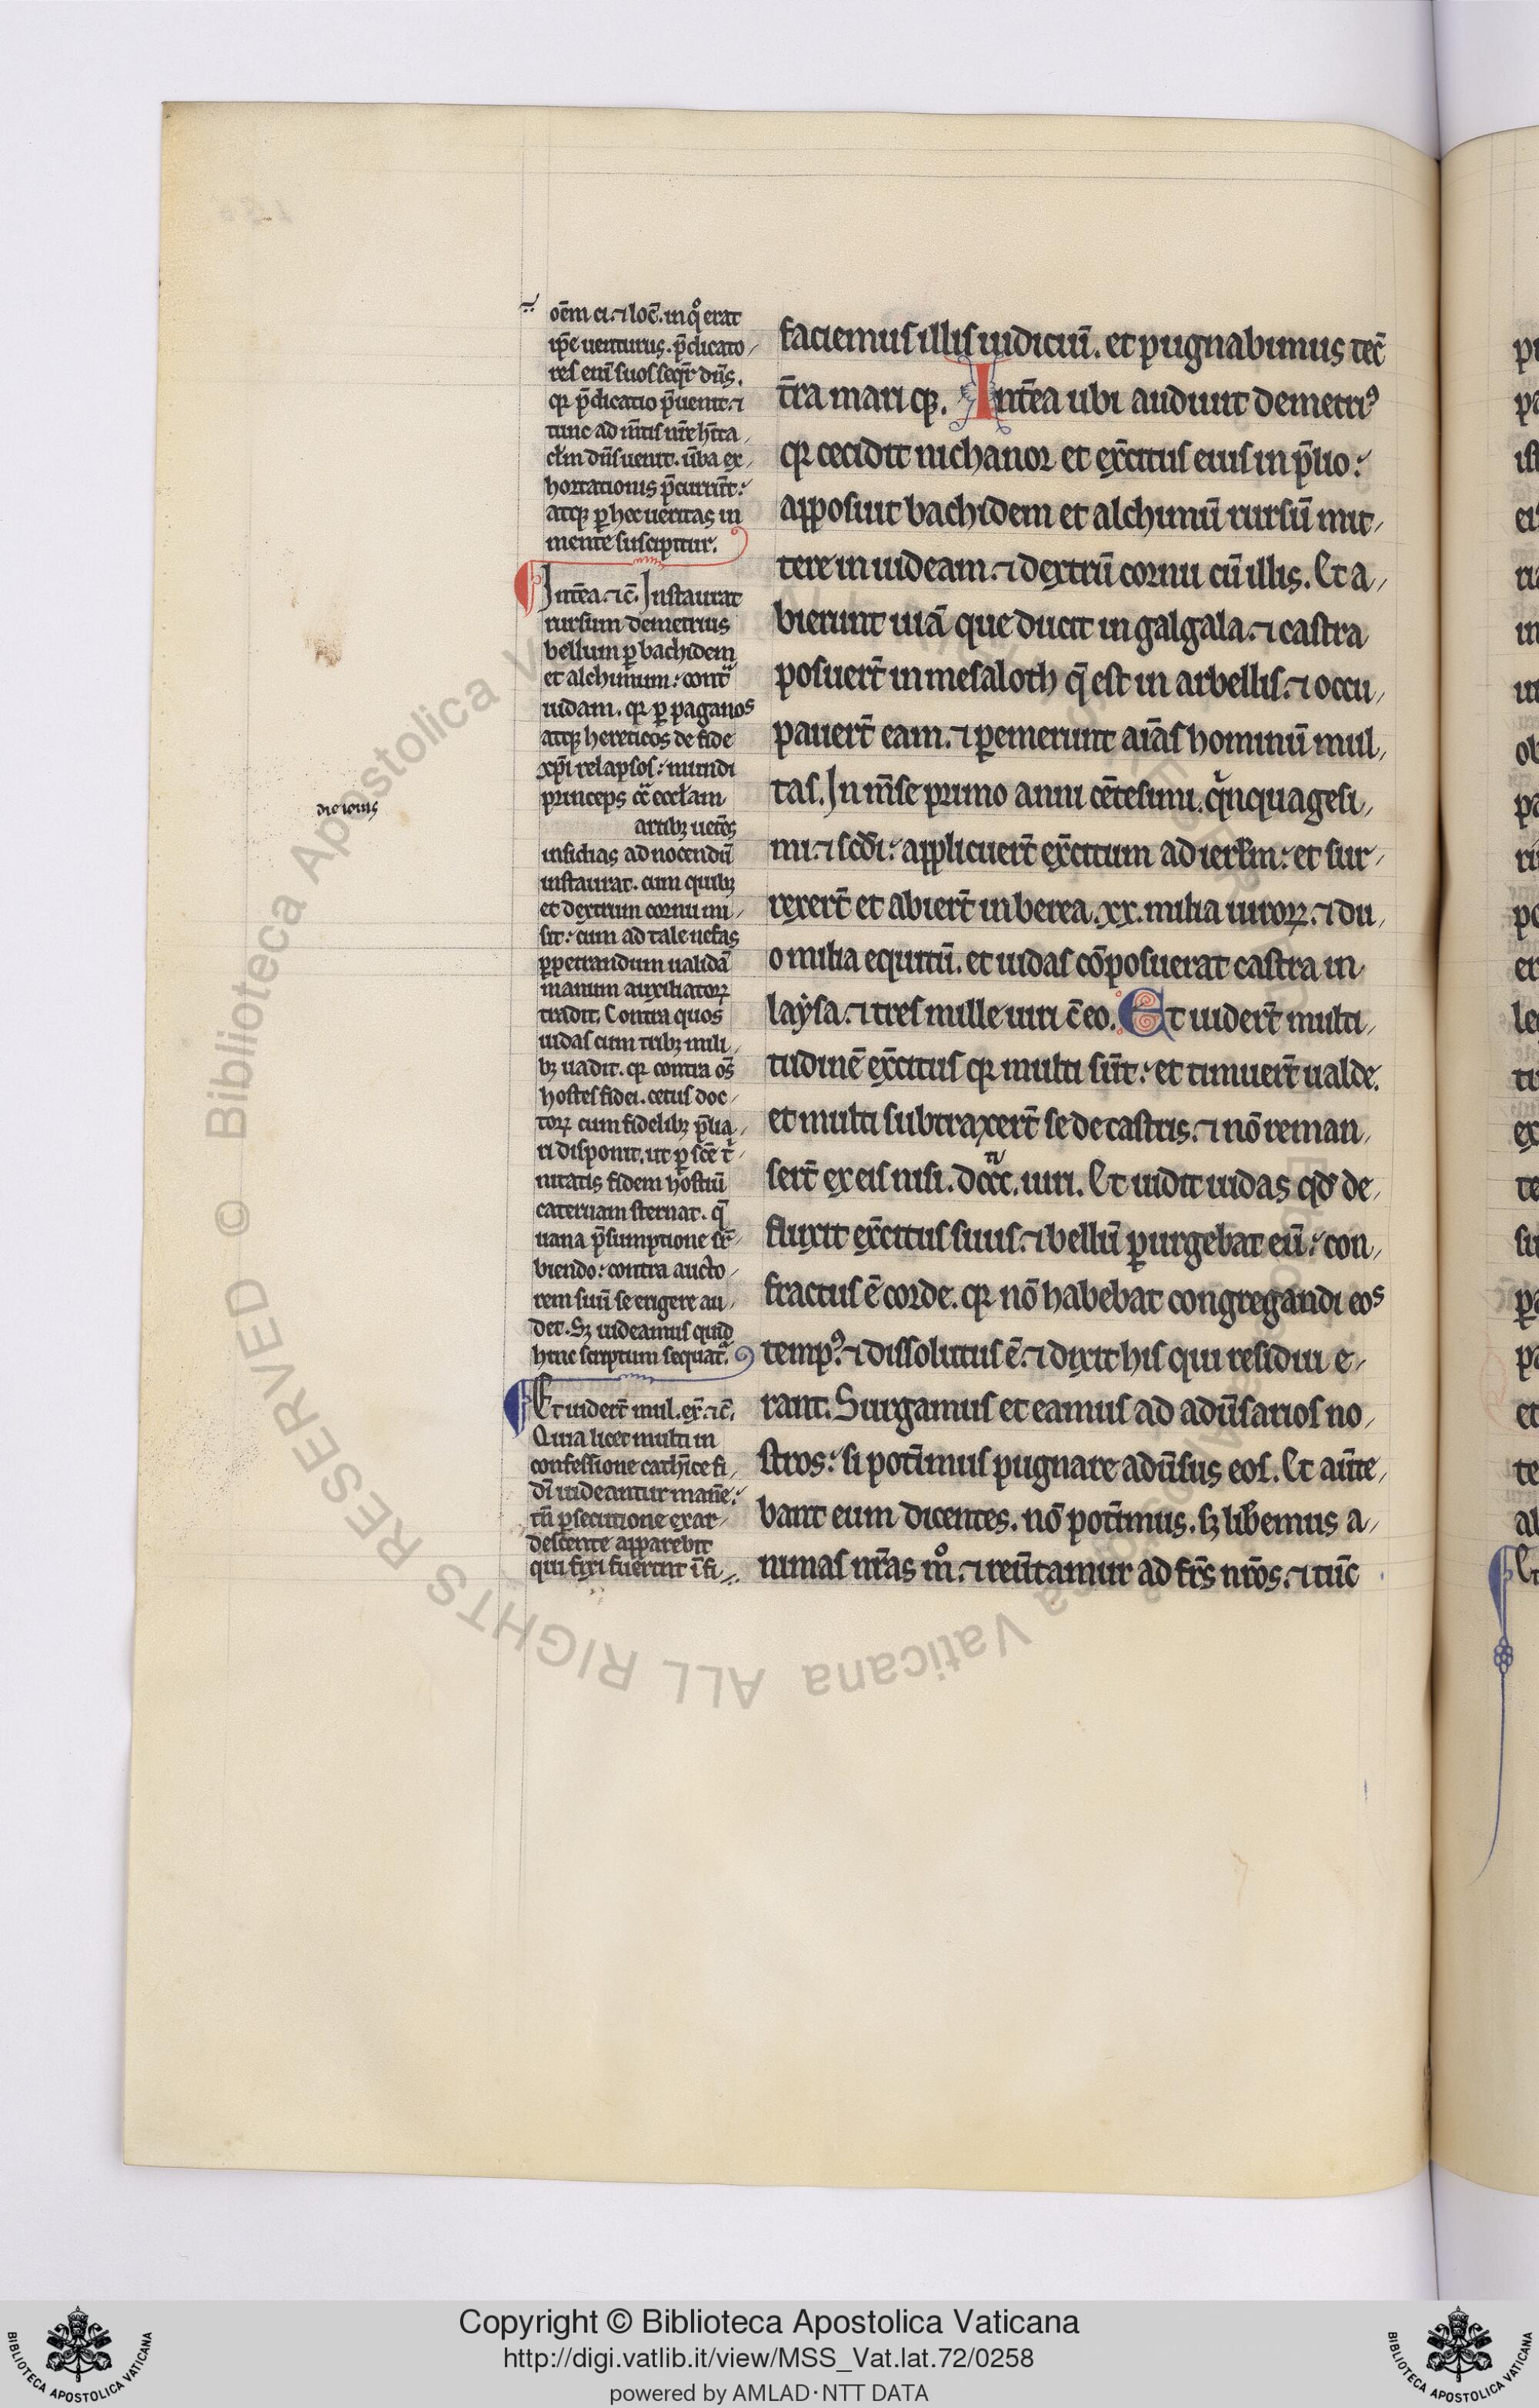 oēm ci. ⁊ locū. in qͦ erat
ip̄e uenturus. p̄dicato
res eni᷑ suos seqr̄ dn̄s.
qꝛ p̄dicatio p̄uenit. ⁊
tunc ad m̄tis nr̄e h̄ita
cl̄m dn̄s uenit. u̅ba ex
hortationis p̄currūt:
atqꝫ ꝑ hec ueritas in
mente suscipitur.
Int̄ea. ⁊c̄. Instaurat
rursum demetrius
bellum ꝑ bachidem
et alchimum: contᵃ
iudam. qꝛ ꝑ paganos
atqꝫ hereticos de fide
xp̄i relapsos: mundi
princeps cͣ eccl̄iam
artibꝫ uet̄es
insidias ad nocendū
instaurat. cum quibꝫ
et dextrum cornu mi
sit: cum ad tale nefas
ꝑpetrandum ualidā
manum auxiliatoꝝ
tradit. Contra quos
iudas cum tribꝫ mili
bꝫ uadit. qꝛ contra om̄s
hostes fidei. cetus doc
toꝝ cum fidelibꝫ p̄lia
ri disponit. ut ꝑ sc̄e tⁱ
nitatis fidem hostiū
cateruam sternat. q̄
uana p̄sumptione sr̄
biendo: contra aucto
rem suū se erigere au
det. Sꝫ uideamus quid
hinc scriptum sequat᷑.
Et uider̄t mul. ex̄. ⁊c̄.
Quia licet multi in
confessione cath̄ice fi
di᷑ uideantur man̄e:
tn̄ ꝑsecutione exar
descente apparebit
qui fixi fuerint ī fi
die iouis
faciemus illis iudiciū. et pugnabimus tec̄
t̄ra mari qꝫ. Int̄ea ubi audiuit demetriꝰ
qꝛ cecidit nichanor et ex̄citus eius in p̄lio:
apposuit bachidem et alchimū rursū mit
tere in iudeam. ⁊ dextrū cornu cū illis. Et a
bierunt uiā que ducit in galgala. ⁊ castra
posuer̄t in mesaloth q̄ est in arbellis. ⁊ occu
pauer̄t eam. ⁊ ꝑemerunt aīas hominū mul
tas. In m̄se primo anni cētesimi. qⁱnquagesi
mi. ⁊ scd̄i: applicuer̄t ex̄citum ad ierl̄m: et sur
rexer̄t et abier̄t in berea. xx. milia uiroꝝ. ⁊ du
o milia equitū. et iudas cōposuerat castra in
laẏsa. ⁊ tres mille uiri c̄ eo. Et uider̄t multi
tudinē ex̄citus qꝛ multi sūt: et timuer̄t ualde.
et multi subtraxer̄t se de castris. ⁊ nō reman
ser̄t ex eis nisi. dccc. uiri. Et uidit iudas qd̄ de
fluxit ex̄citus suus. ⁊ bellū ꝑurgebat eū: con
fractus ē corde. qꝛ nō habebat congregandi eos
tempꝰ. ⁊ dissolutus ē. ⁊ dixit his qui residui e
rant. Surgamus et eamus ad adu̅sarios no
stros: si pot̄imus pugnare adu̅sus eos. Et au̅te
bant eum dicentes. nō pot̄imus. sꝫ lib̄emus a
nimas nr̄as mͦ. ⁊ reu̅tamur ad fr̄s nr̄os. ⁊ tūc
Copyright © Biblioteca Apostolica Vaticana
http://digi.vatlib.it/view/MSS_Vat.lat.72/0258
powered by AMLAD·NTT DATA